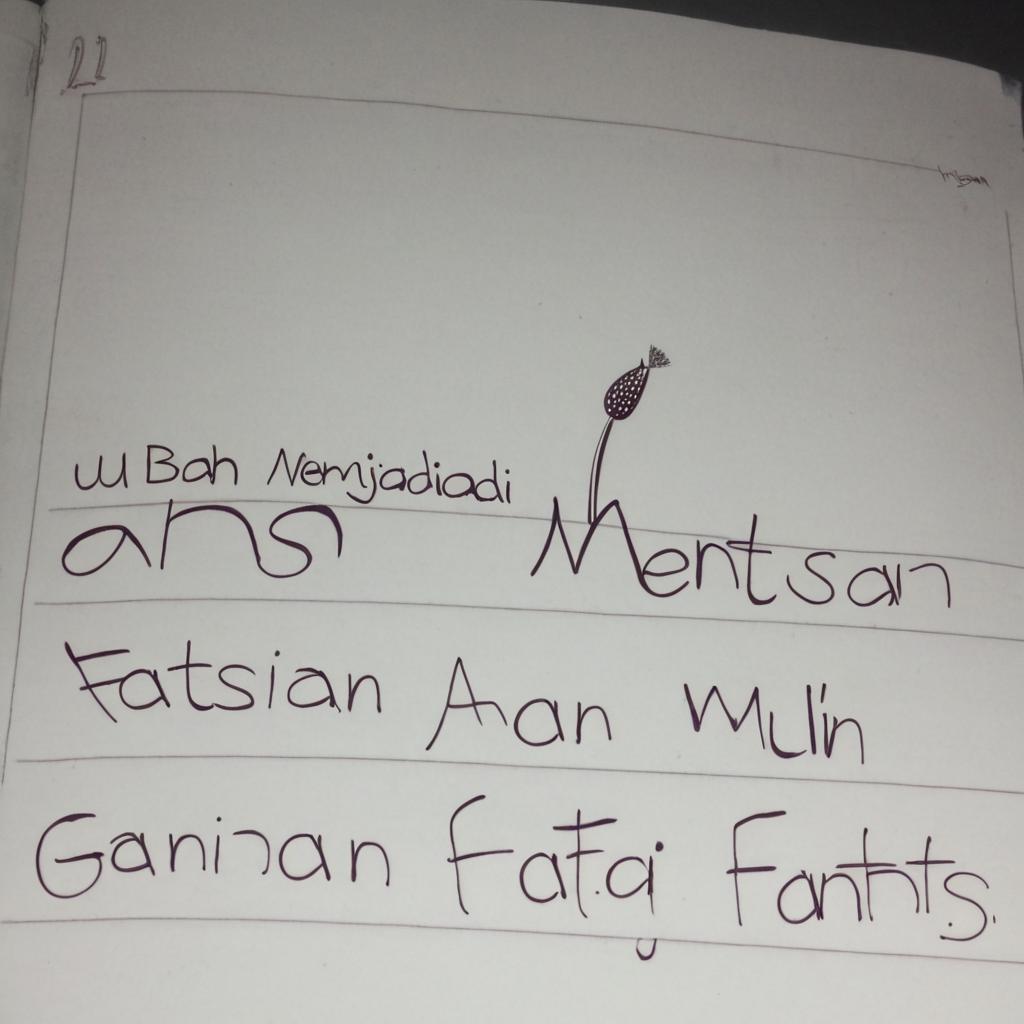 21
w Bah Nemjadiadi
ans Mentsan
Fatsian Aan Mulin
Gania Fatqj Fantts.